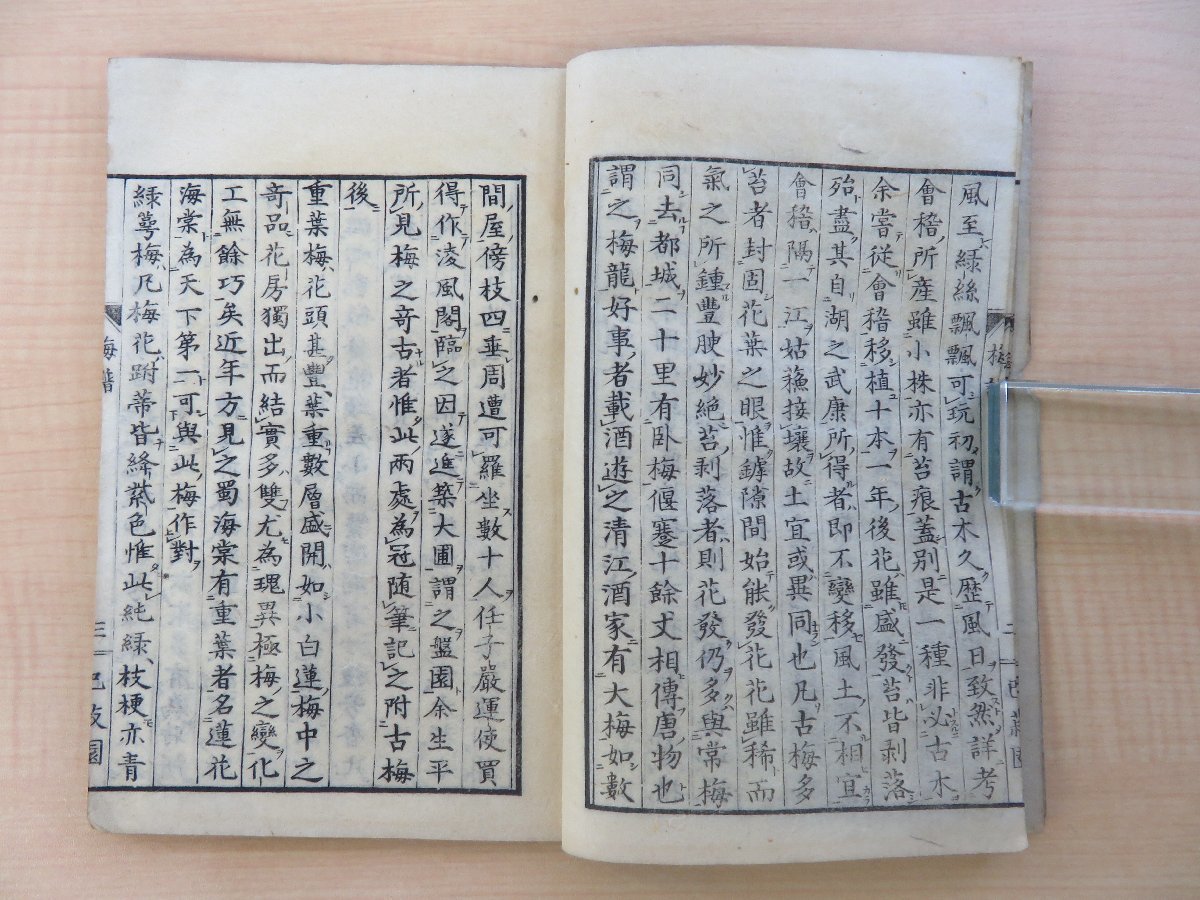 風至綠絲飄飄可玩初謂古木久歷風日致然詳考
會稽所產雖小株亦有苔痕蓋別是一種非必古木
余嘗從會稽移植十本一年後花雖盛發苔皆剥落
殆盡其自湖之武康所得者即不變移風土不相宜
會稽隔一江姑蘓接壤故土宜或異同也凡古梅多
苔者封固花葉之眼惟罅隙間始能發花花雖稀而
氣之所鍾豐腴妙絶苔剥落者則花發仍多與常梅
同去都城二十里有卧梅偃蹇十餘丈相傳唐物也
謂之梅龍好事者載酒遊之清江酒家有大梅如數
間屋傍枝四垂周遭可羅坐數十人任子嚴運使買
得作凌風閣臨之因遂進築大圃謂之盤園余生平
所見梅之奇古者惟此兩處為冠随筆記之附古梅
後
重葉梅花頭甚豐葉重數層盛開如小白蓮梅中之
奇品花房獨出而結實多雙尤為瑰異極梅之變化
工無餘巧矣近年方見之蜀海棠有重葉者名蓮花
海棠為天下第一可與此梅作對
綠萼梅凡梅花跗蒂皆絳紫色惟此純綠枝梗亦青
梅譜
三